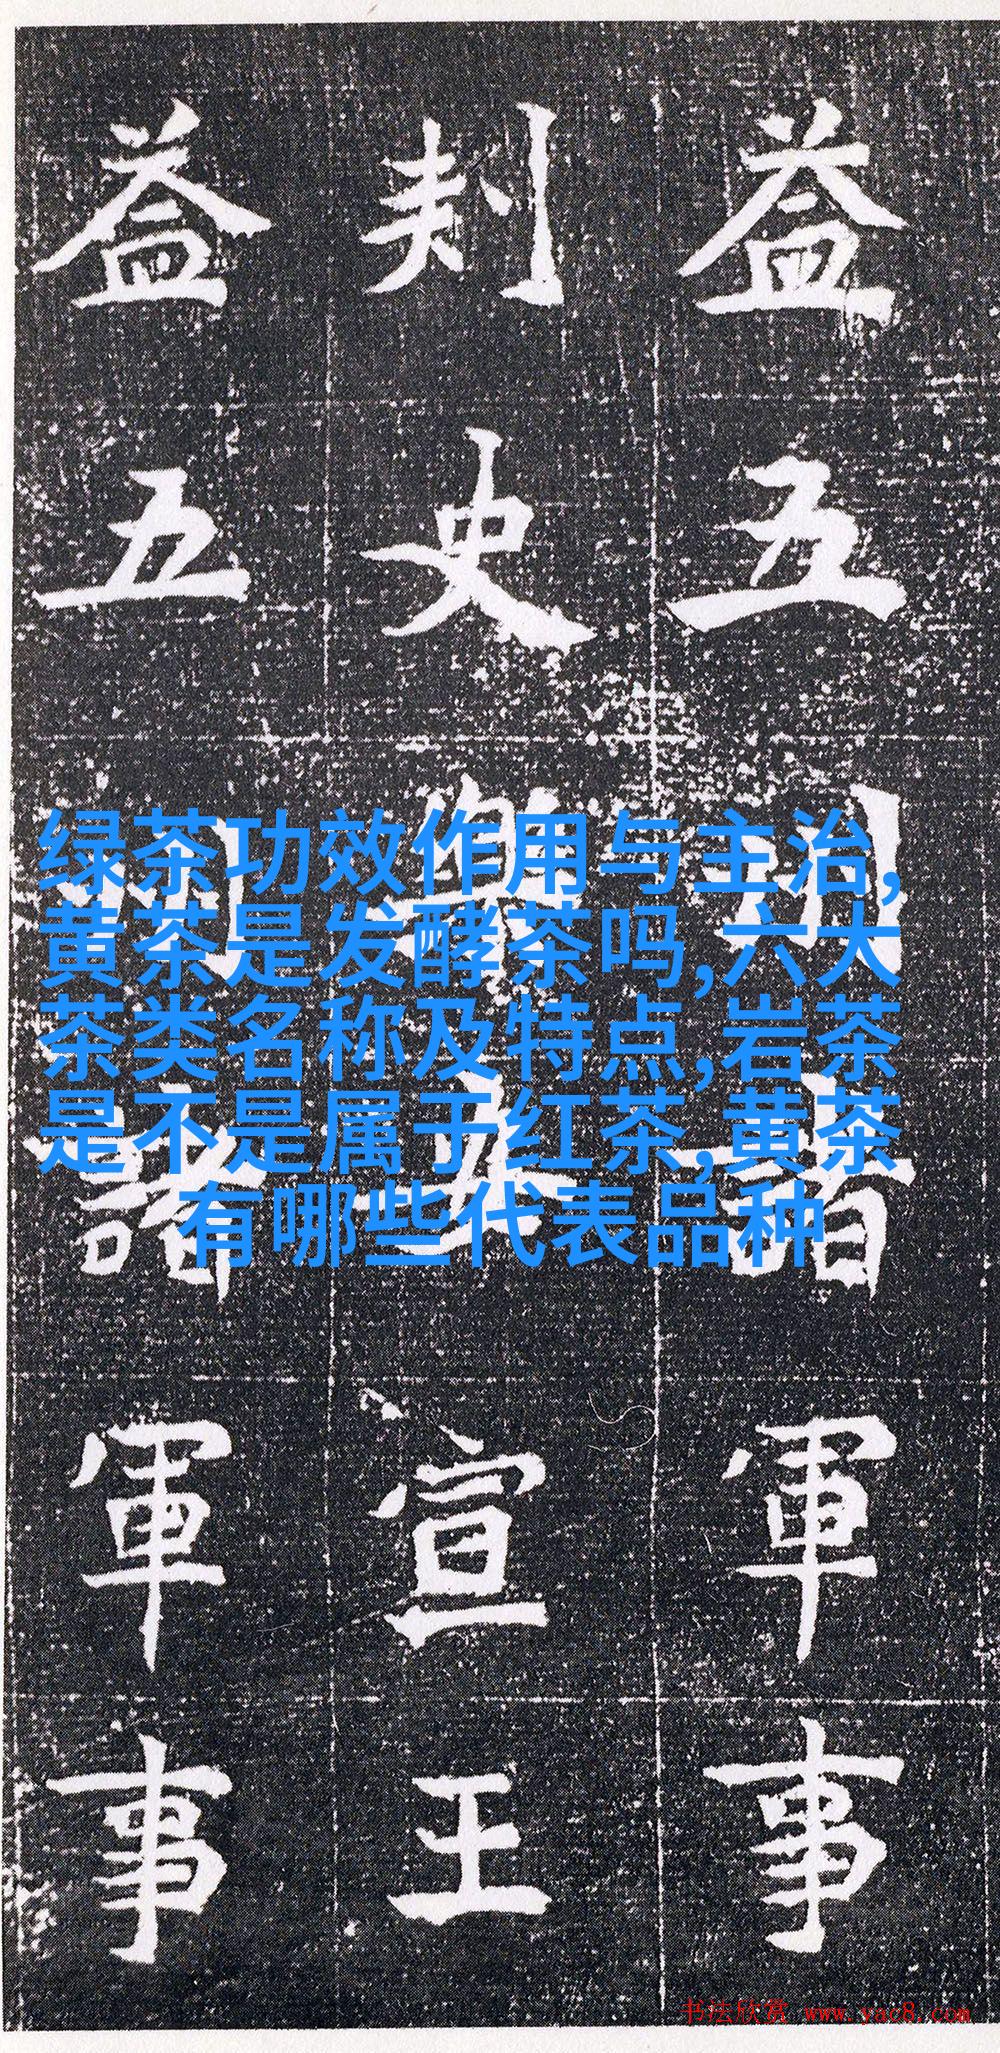 益五州諸軍事
刺史
宣王
益五州諸軍事
绿茶功效作用与主治,
黄茶是发酵茶吗,六大
茶类名称及特点,岩茶
是不是属于红茶,黄茶
有哪些代表品种
书法欣赏 www.yac8.com